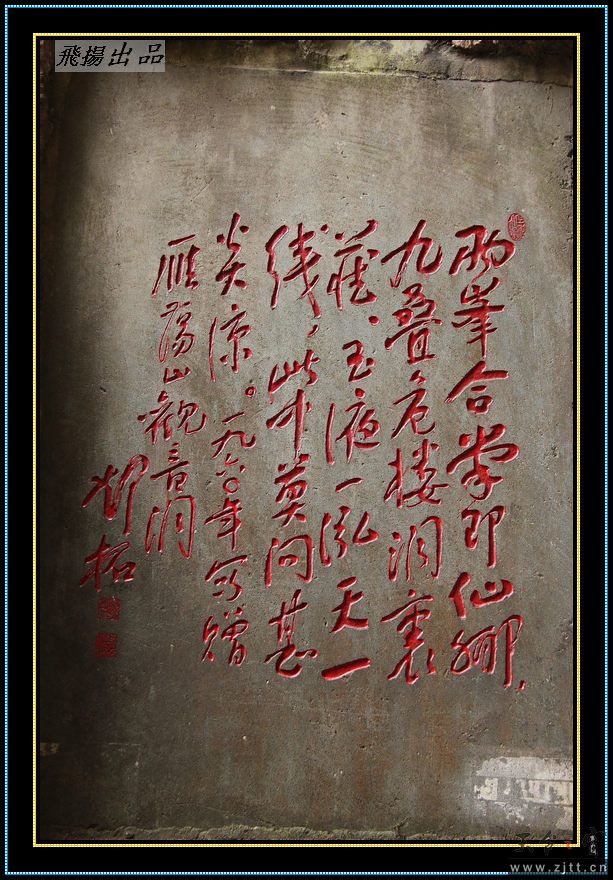 飛揚出品
两峯合掌即仙乡，
九叠危楼洞裏
藏。玉液一泓天一
线，此中莫问甚
炎凉。一九六〇年写赠
雁荡山观音洞
邓拓
www.zjtt.cn